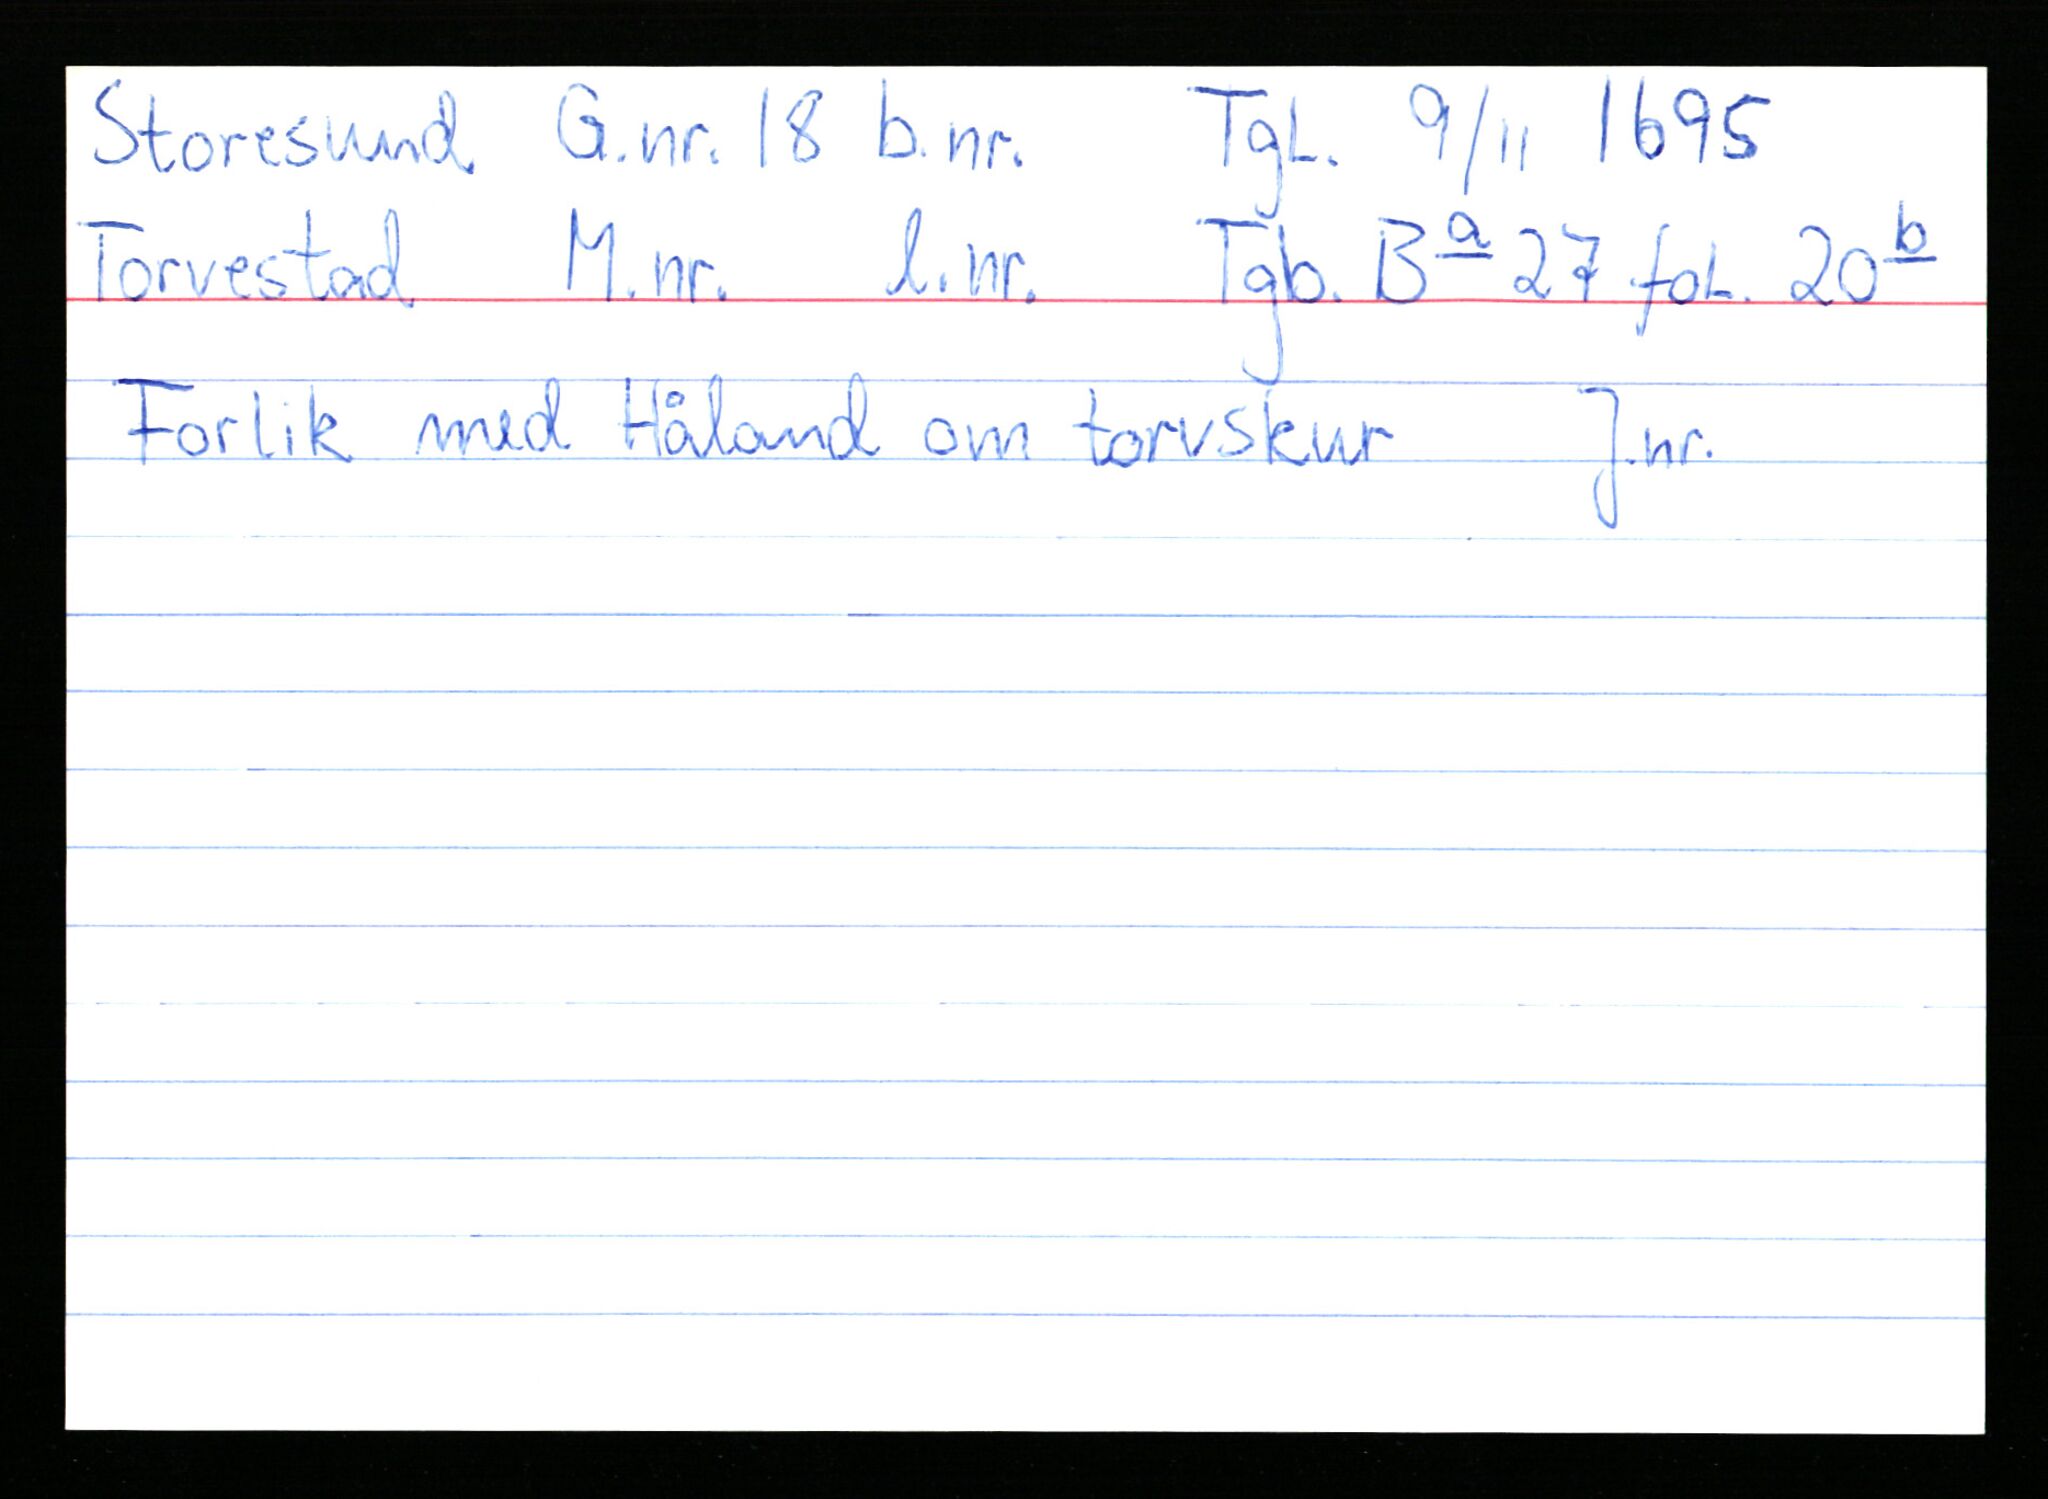 Storesund G.nr. 18 b.nr. Tgl. 9/11 1695
Torvestad M.nr. l.nr. Tgb. Bª 27 fol. 20ᵇ
Forlik med Håland om torvskur J.nr.